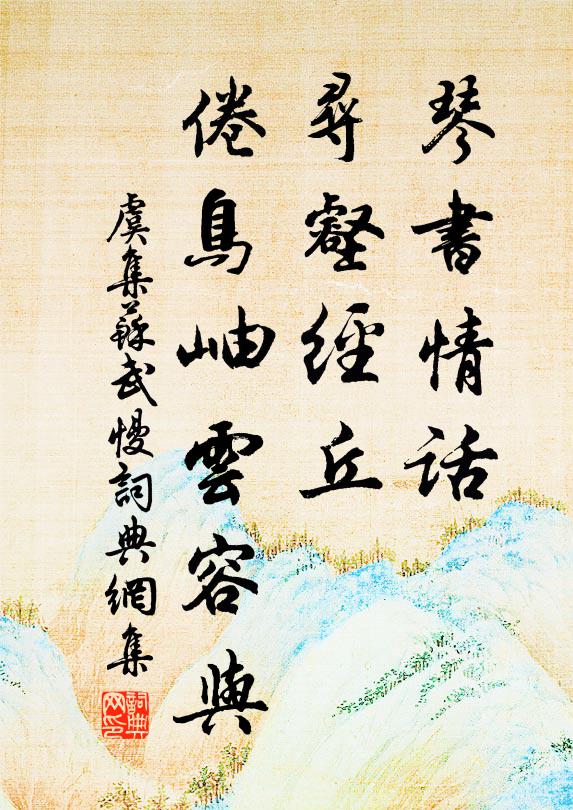 琴書情話
尋壑經丘
倦鳥岫雲容與
虞集蘇武慢詞典網集
詞典網印